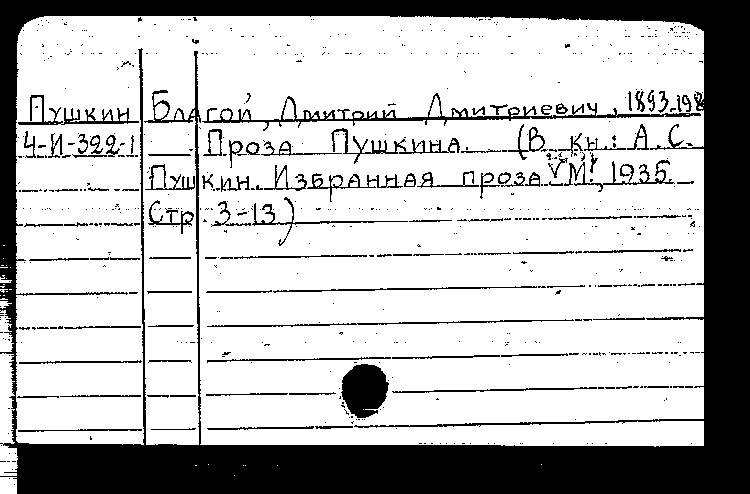 Пушкин Благой, Дмитрий Дмитриевич, 1893-198
4-И-322-1 Проза Пушкина. (В кн.: А.С.
Пушкин. Избранная проза М., 1935.
Стр. 3-13)